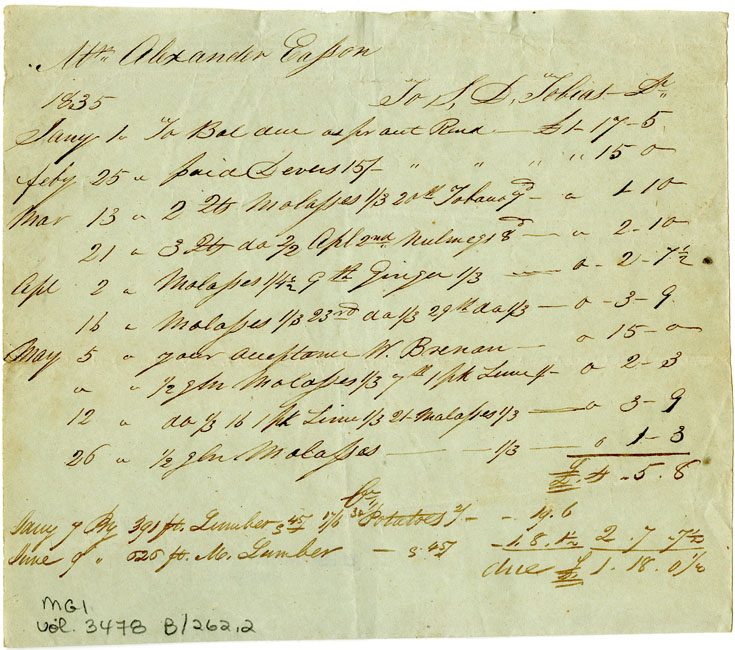 Mr. Alexander Easson
1835 To S, D, Tobias Dr
Jany 1 " To Bal due as pr acct Rend — £1 - 17 - 5
feby 25 " paid Devers 15/- " " " " 15 0
Mar 13 " 2 Qts Molasses 1/3 20th Tobacco 7d — " 1 10
21 " 3 Qts do 2/2 Apl 2nd Nutmegs 8d — " 2 - 10
Apl 2 " Molasses 1/4½ 9th Ginger 1/3 — " - 2 - 7½
16 " Molasses 1/3 23rd do 1/3 29th do 1/3 — " - 3 - 9
May 5 " your acceptance W. Brenan — " 15 - 0
" " ½ gln Molasses 1/3 7th 1 pk Lime 1/- " 2 - 3
12 " do 1/3 16 1 pk Lime 1/3 21 - Molasses 1/3 — " 3 - 9
26 " ½ gln Molasses — 1/3 " 1 - 3
£4 - 5 . 8
Cr
Jany 7 By 391 ft. Lumber 45/ 17/6 Potatoes 2/ - - 19.6
June 9 " 625 ft. M. Lumber — 45/ 1.8.1½ 2 . 7 . 7½
due £1 . 18 . 0½
MG1
vol. 3478 B/262.2